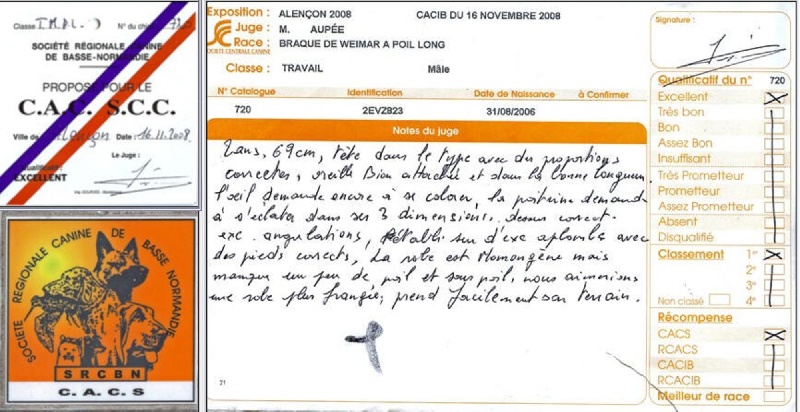 Classe T.M.R.L. N° du chien 720
SOCIÉTÉ RÉGIONALE CANINE
DE BASSE-NORMANDIE
PROPOSÉ POUR LE
C.A.C. S.C.C.
Ville de Alençon Date 16.11.2008
Le Juge :
Qualificatif
EXCELLENT
SOCIETE REGIONALE CANINE DE BASSE NORMANDIE
SRCBN
C. A. C. S
Exposition : ALENÇON 2008 CACIB DU 16 NOVEMBRE 2008
Juge : M. AUPÉE
Race : BRAQUE DE WEIMAR A POIL LONG
SOCIÉTÉ CENTRALE CANINE
Classe : TRAVAIL Mâle
N° Catalogue Identification Date de Naissance à Confirmer
720 2EVZ823 31/08/2006
Notes du juge
2 ans, 69 cm, tête dans le type avec du proportions
correctes, oreille Bien attachée et dans la bonne longueur
l'oeil demande encore à se colorer, la poitrine demande
à s'éclater dans ses 3 dimensions. dessus correct.
exc. angulations, établi sur d'exc aplombs avec
des pieds corrects, La robe est Homogène mais
manque un peu de poil et sous poil, nous aimerions
une robe plus frangée, prend facilement son terrain.
21
Signature :
Qualificatif du n° 720
Excellent
Très bon
Bon
Assez Bon
Insuffisant
Très Prometteur
Prometteur
Assez Prometteur
Absent
Disqualifié
Classement 1er
2e
3e
Non classé 4e
Récompense
CACS
RCACS
CACIB
RCACIB
Meilleur de race